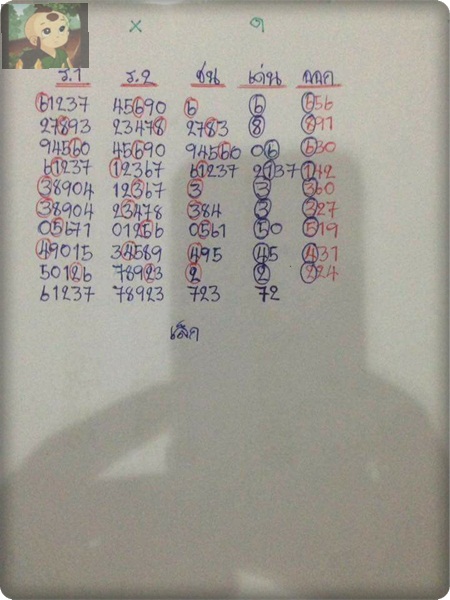 × ๑
ร.1 ร.2 ชน เด่น ออก
61237 45690 6 6 556
27893 23478 2783 8 891
94560 45690 94560 06 630
61237 12367 61237 2137 142
38904 12367 3 3 360
38904 23478 384 3 327
05671 01256 0561 50 519
49015 34589 495 45 431
50126 78923 2 2 224
61237 78923 723 72
เลิศ